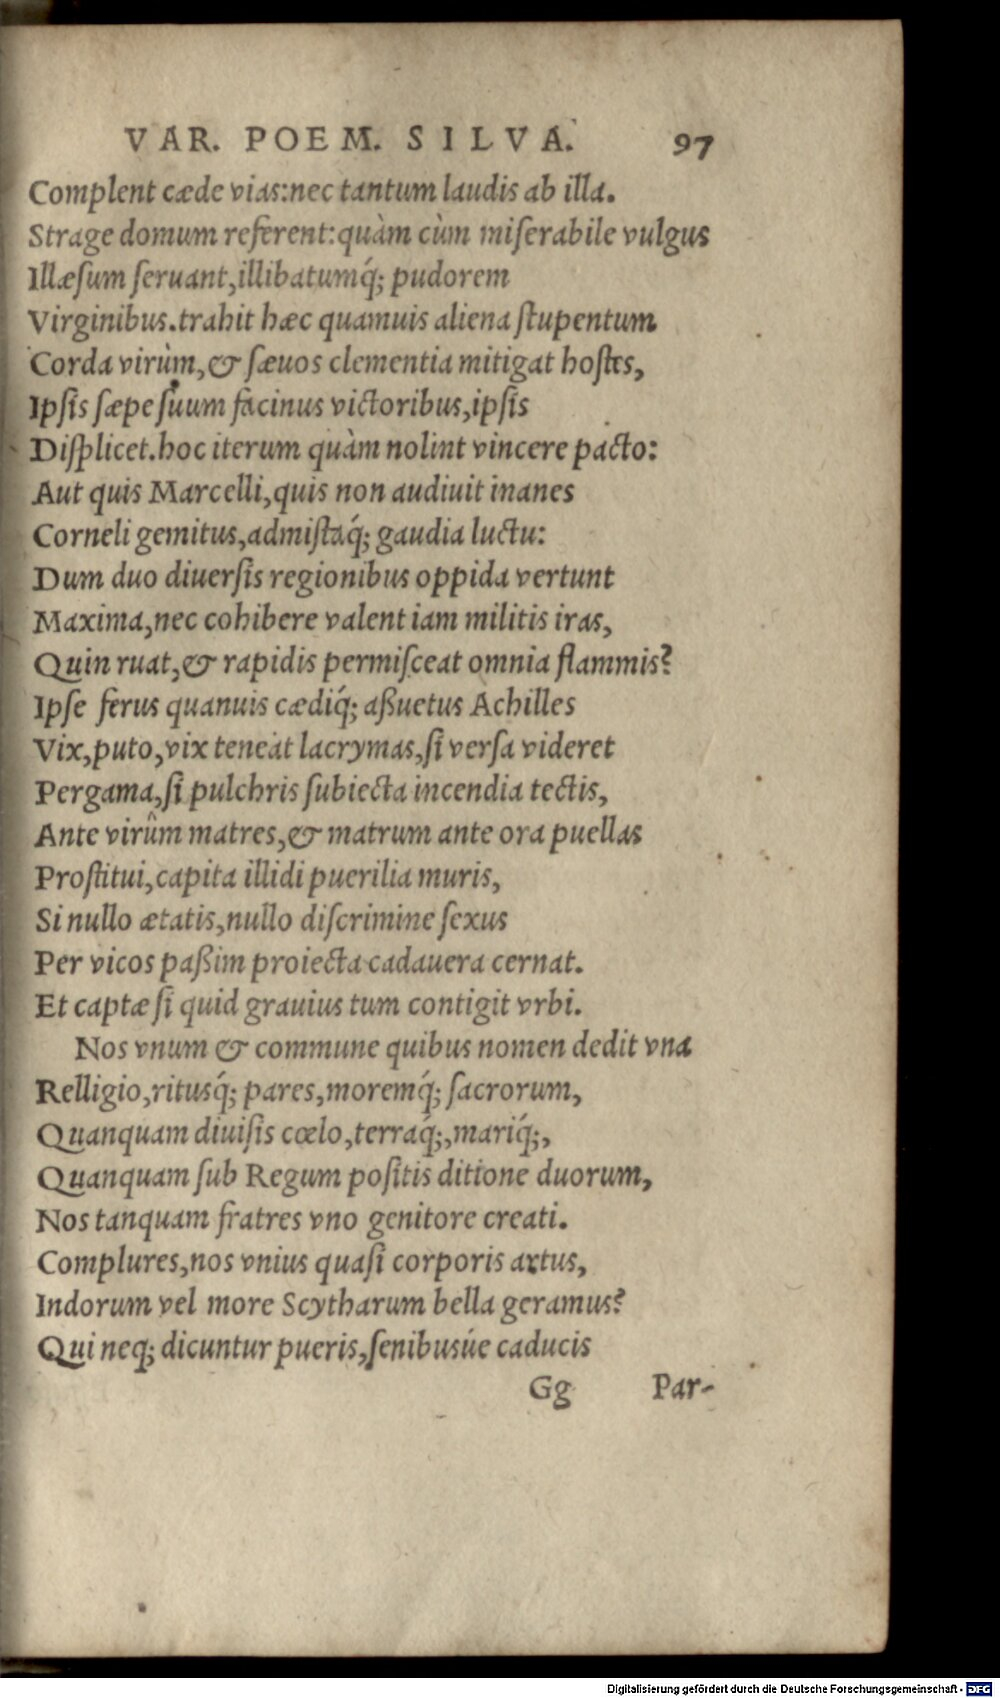 VAR. POEM. SILVA. 97
Complent cæde vias: nec tantum laudis ab illa.
Strage domum referent: quàm cùm miserabile vulgus
Illæsum seruant, illibatumq́; pudorem
Virginibus. trahit hæc quamuis aliena stupentum
Corda virûm, & sæuos clementia mitigat hostes,
Ipsis sæpe suum facinus victoribus, ipsis
Displicet. hoc iterum quàm nolint vincere pacto:
Aut quis Marcelli, quis non audiuit inanes
Corneli gemitus, admistaq́; gaudia luctu:
Dum duo diuersis regionibus oppida vertunt
Maxima, nec cohibere valent iam militis iras,
Quin ruat, & rapidis permisceat omnia flammis?
Ipse ferus quanuis cædiq́; aßuetus Achilles
Vix, puto, vix teneat lacrymas, si versa videret
Pergama, si pulchris subiecta incendia tectis,
Ante virûm matres, & matrum ante ora puellas
Prostitui, capita illidi puerilia muris,
Si nullo ætatis, nullo discrimine sexus
Per vicos paßim proiecta cadauera cernat.
Et captæ si quid grauius tum contigit vrbi.
Nos vnum & commune quibus nomen dedit vna
Relligio, ritusq́; pares, moremq́; sacrorum,
Quanquam diuisis cœlo, terraq́;, mariq́;,
Quanquam sub Regum positis ditione duorum,
Nos tanquam fratres vno genitore creati.
Complures, nos vnius quasi corporis artus,
Indorum vel more Scytharum bella geramus?
Qui neq; dicuntur pueris, senibusúe caducis
Gg Par-
Digitalisierung gefördert durch die Deutsche Forschungsgemeinschaft - DFG